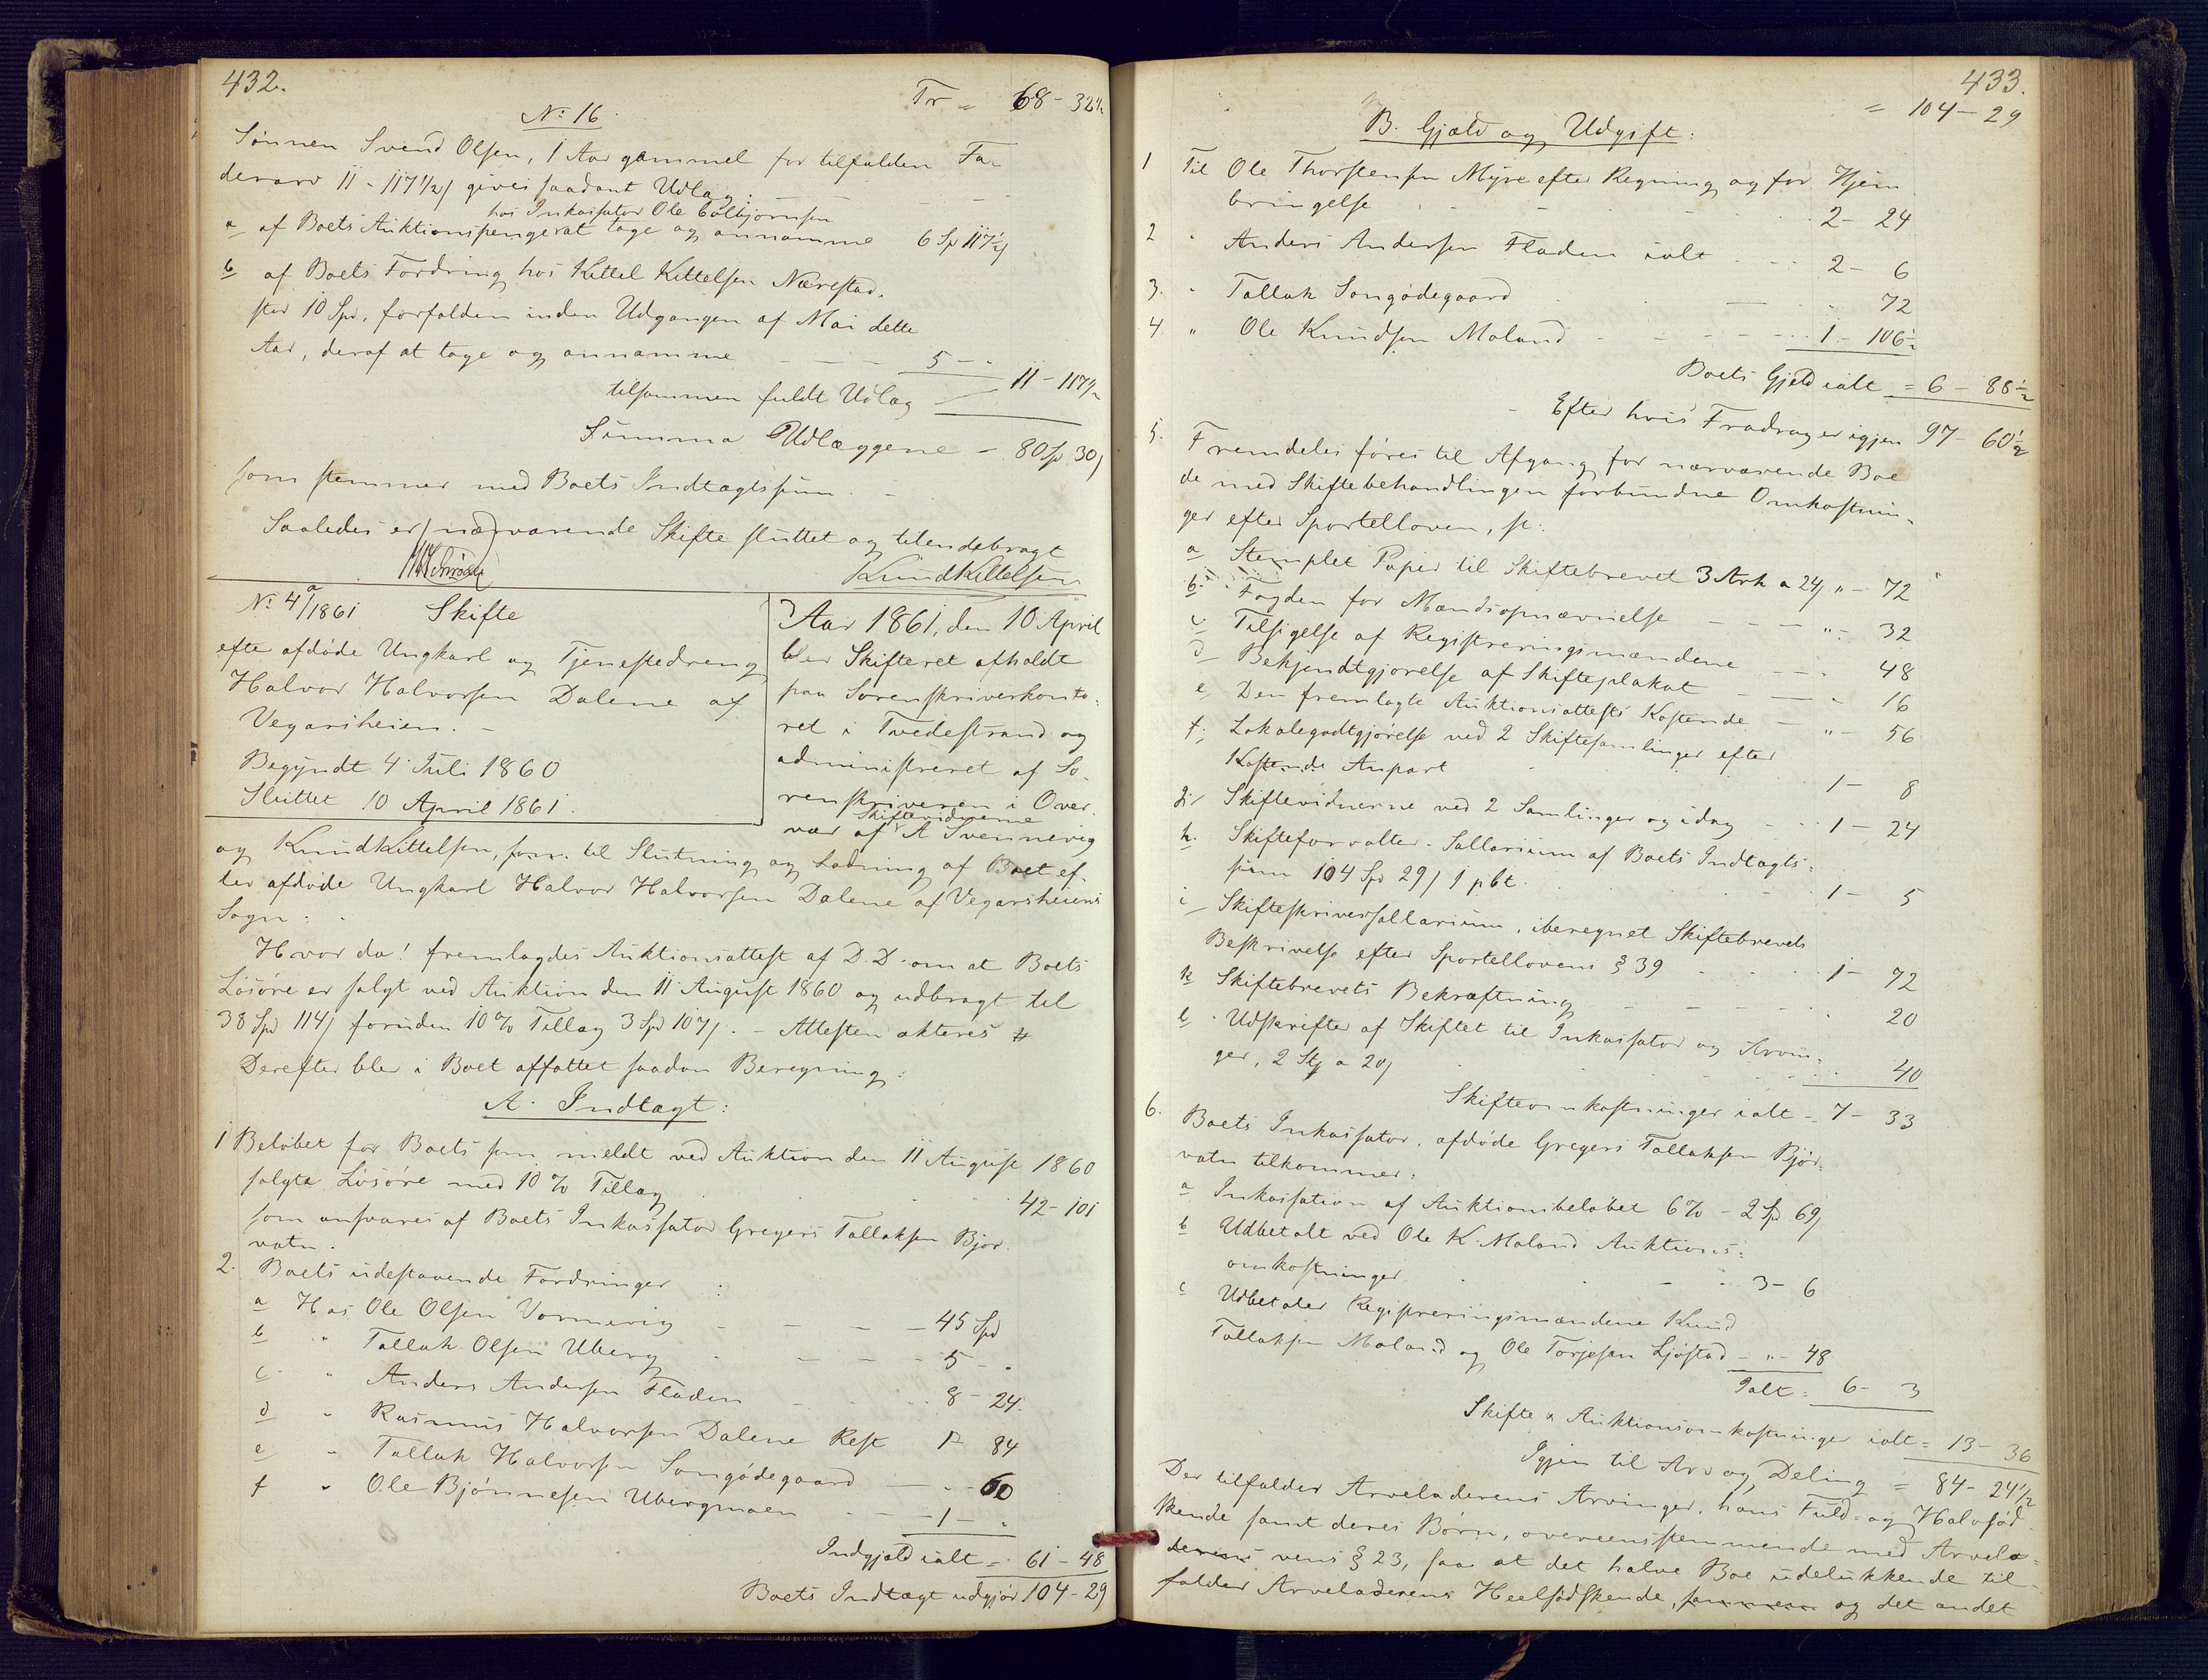 432.
Tr = 68 - 32½
No: 16.
Sønnen Svend Olsen, 1 Aar gammel for tilfalden Fa-
derarv 11 - 117½ s gives saadant Udlæg:
hos Inkassator Ole Colbjørnsen
a af Boets Auktionspenge at tage og annamme 6 Sp 117½ s
b af Boets Fordring hos Kittel Kittelsen Nærestad.
stor 10 Spd. forfalden inden Udgangen af Mai dette
Aar, deraf at tage og annamme - - - 5 - "
tilsammen fuldt Udlæg 11 - 117½
Summa Udlæggene - 80 Sp 30 s
som stemmer med Boets Indtægtssum. -
Saaledes er nærværende Skifte sluttet og tilendebragt
Knud Kittelsen
No: 4a/1861 Skifte
efter afdøde Ungkarl og Tjenestedreng
Halvor Halvorsen Dalene af
Vegarsheien. -
Begyndt 4 Juli 1860
Sluttet 10 April 1861.
Aar 1861, den 10 April
blev Skifteret afholdt
paa Sorenskriverkonto-
ret i Tvedestrand og
administreret af So-
renskriveren i Over-
Skiftevidnerne
vær af A Svennevig
og Knud Kittelsen, som til Slutning og Ladning af Boet ef-
ter afdøde Ungkarl Halvor Halvorsen Dalene af Vegarsheiens
Sogn:
Hvor da! fremlagdes Auktionsattest af D. D. om at Boets
Løsøre er solgt ved Auktion den 11 August 1860 og udbragt til
38 Spd 114 s foruden 10 % Tillæg 3 Spd 107 s. - Attesten akteres #
Derefter blev i Boet affattet saadan Beregning:
A. Indtægt:
1 Beløbet for Boets som meldt ved Auktion den 11 August 1860
solgte Løsøre med 10 % Tillæg 42 - 101
som ansvares af Boets Inkassator Gregers Tallaksen Bjor-
vatn.
2. Boets udestaaende Fordringer:
a Hos Ole Olsen Vormevig - - - 45 Spd
b " Tallak Olsen Uberg - - - 5 - "
c " Anders Andersen Fladen 8 - 24.
d " Rasmus Halvorsen Dalene Rest 1 - 84
e " Tallak Halvorsen Songødegaard - 60
f " Ole Bjørnnesen Ubergmoen - 1 - "
Indgjæld ialt = 61 - 48
Boets Indtægt udgjør 104 - 29
433.
= 104 - 29
B. Gjæld og Udgift:
1 Til Ole Thorstensen Myre efter Regning og for Hjem-
bringelse 2 - 24
2 " Anders Andersen Fladen ialt 2 - 6
3. " Tallak Songødegaard - " 72
4 " Ole Knudsen Moland 1 - 106½
Boets Gjeld ialt = 6 - 88½
Efter hvis Fradrag er igjen 97 - 60½
5. Fremdeles føres til Afgang for nærværende Boe
de med Skiftebehandlingen forbundne Omkostnin-
ger efter Sportelloven, sc:
a Stemplet Papir til Skiftebrevet 3 Ark a 24 s " - 72
b. Fogden for Mændsopnævnelse - - " - 32
c Tilsigelse af Registreringsmændene - - 48
d Bekjendtgjørelse af Skifteplakat - - 16
e Den fremlagte Auktionsattests Kostende - " - 56
f. Lokalegodtgjørelse ved 2 Skiftesamlinger efter
Kostende Anpart 1 - 8
g Skiftevidnerne ved 2 Samlinger og idag - 1 - 24
h. Skifteforvalter-Sallarium af Boets Indtægts-
sum 104 Spd 29 s 1 pCt. 1 - 5
i Skifteskriversallarium, iberegnet Skiftebrevets
Beskrivelse efter Sportellovens § 39 1 - 72
k Skiftebrevets Bekræftning 20
l Udskrifter af Skiftet til Inkassator og Arvin-
ger, 2 Stk a 20 s 40
Skifteomkostninger ialt = 7 - 33
6. Boets Inkassator, afdøde Gregers Tallaksen Bjor-
vatn tilkommer:
a Inkassation af Auktionsbeløbet 6 % - 2 Spd 69 s
b Udbetalt ved Ole K. Moland Auktions-
omkostninger 3 - 6
c Udbetaler Registreringsmændene Knud
Tallaksen Moland og Ole Torjesen Ljøstad - " - 48
Ialt = 6 - 3
Skifte & Auktionsomkostninger ialt = 13 - 36
Igjen til Arv og Deling = 84 - 24½
Der tilfalder Arveladerens Arvinger, hans Fuld- og Halvsød-
skende samt deres Børn, overeensstemmende med Arvelo-
vens § 23, saa at det halve Boe udelukkende til-
falder Arveladerens Heelsødskende, og det andet